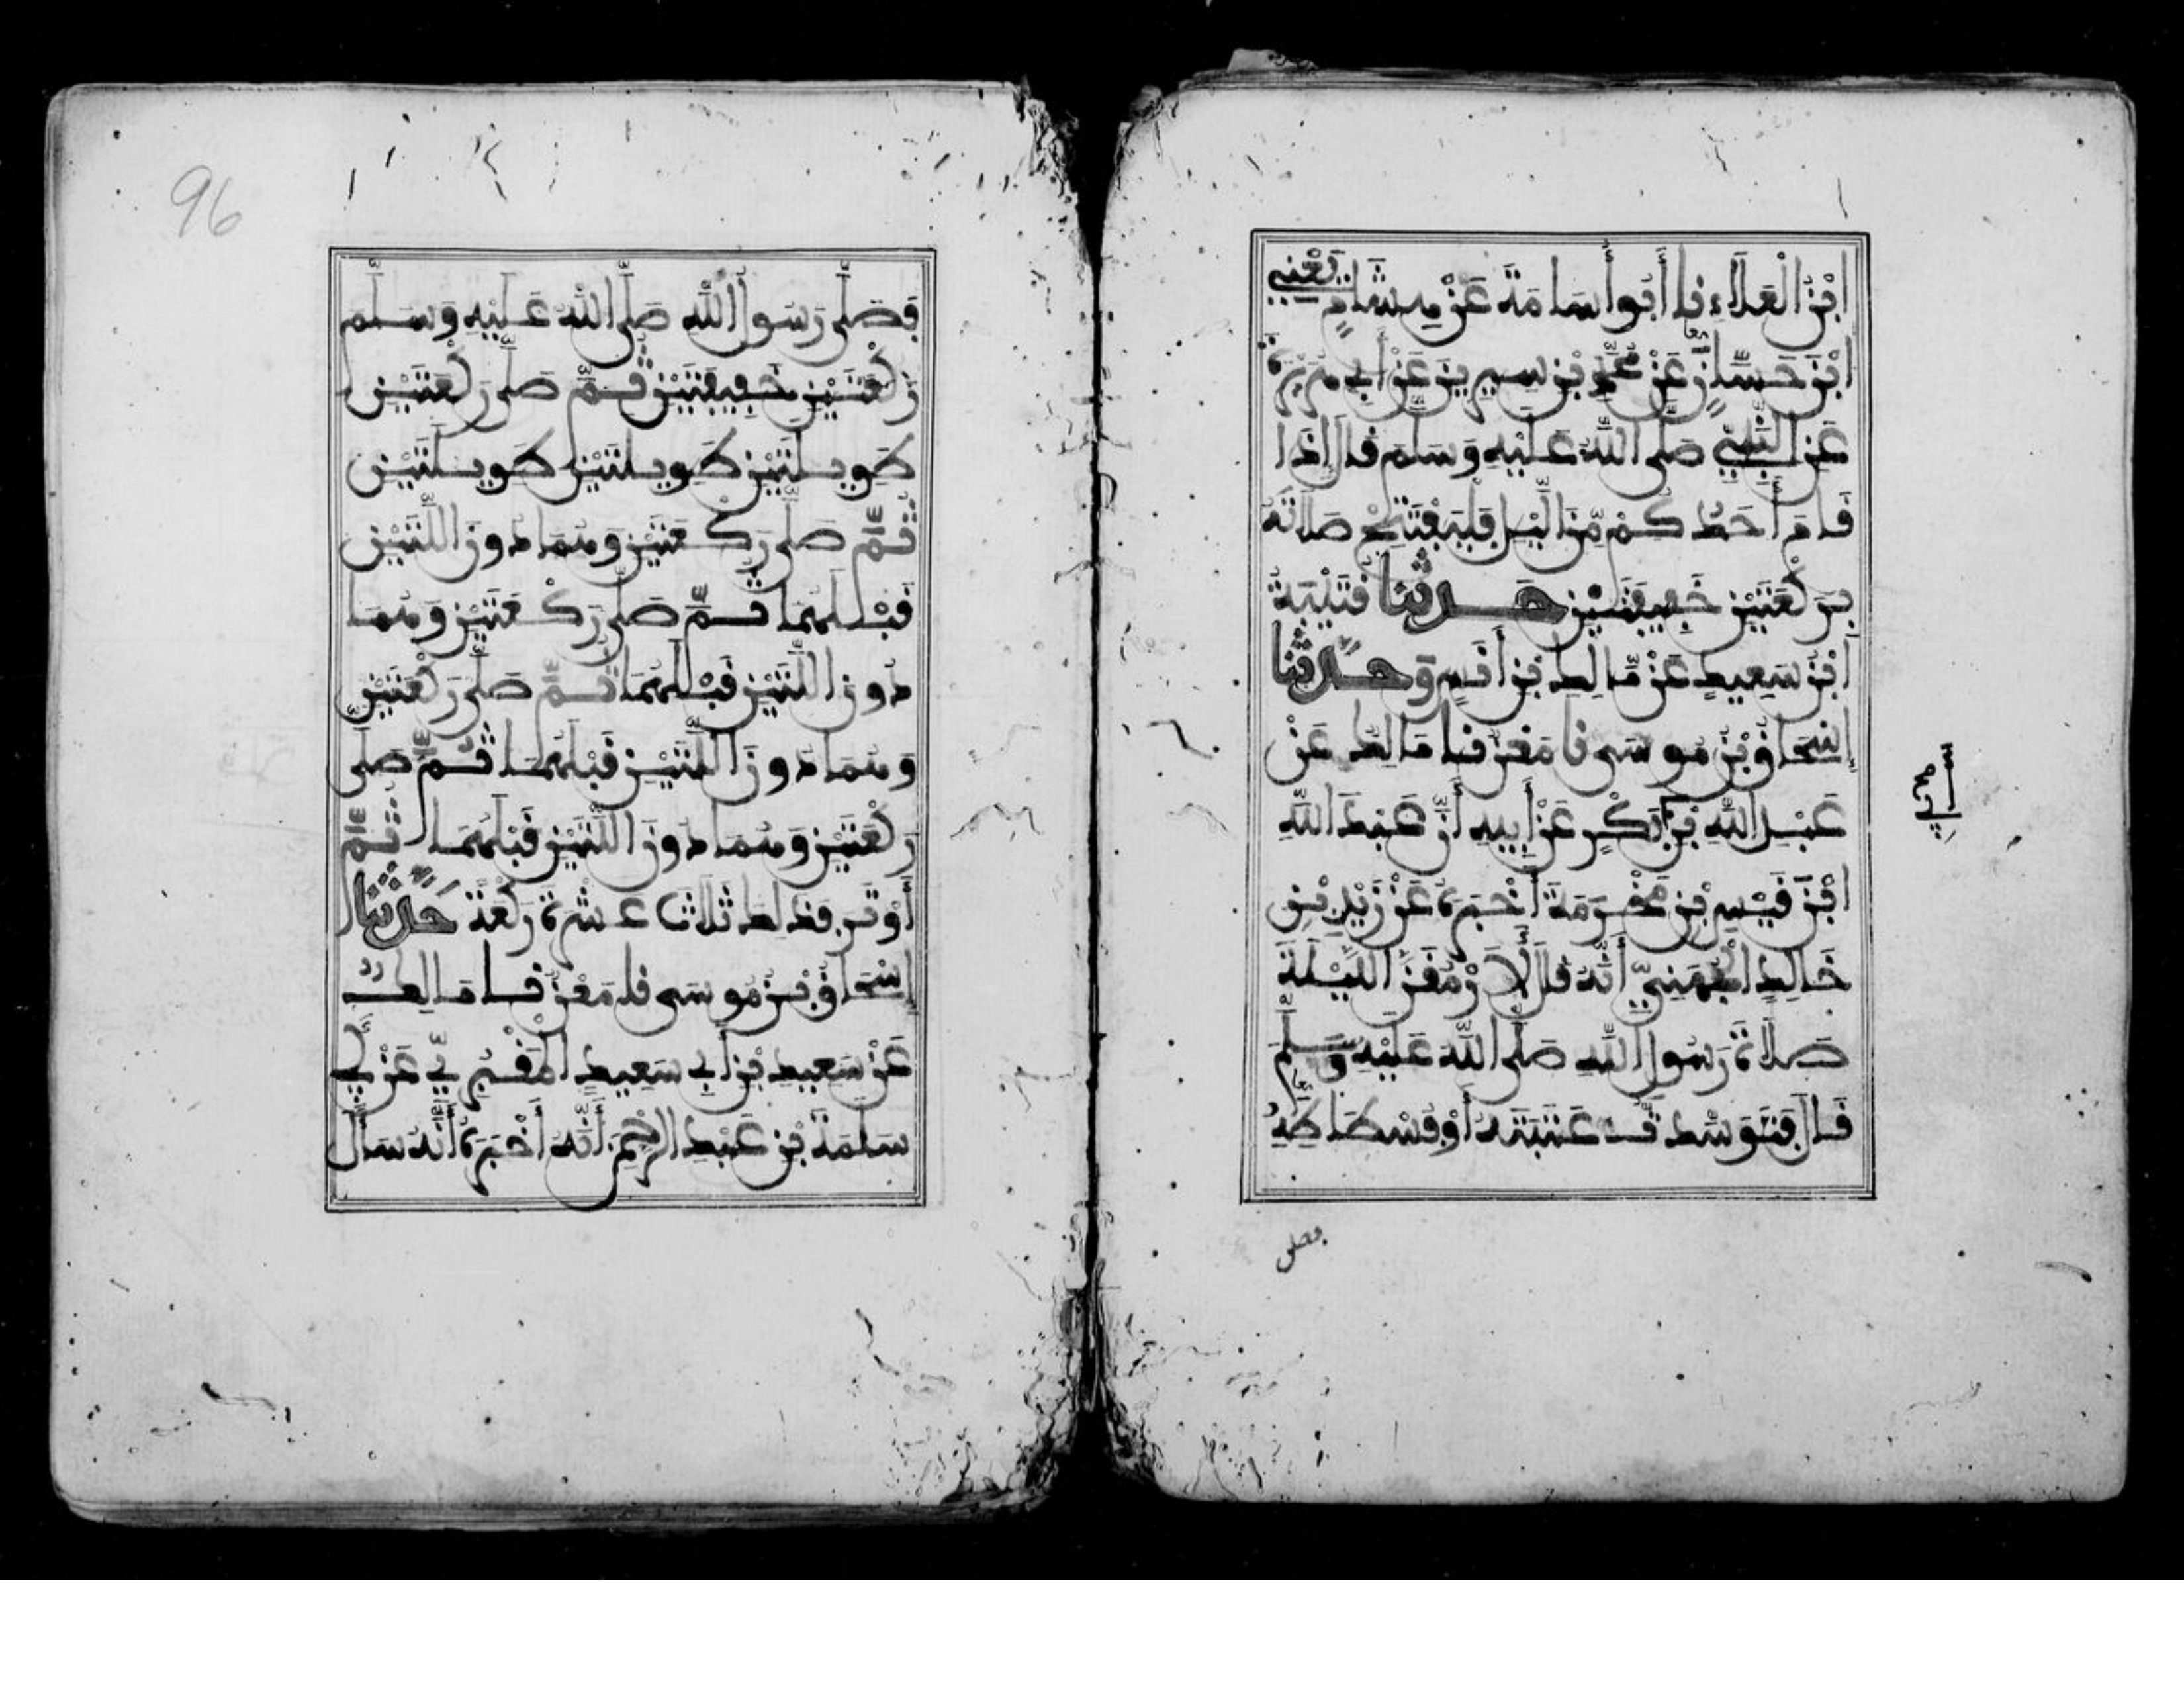 ابْنُ الْعَلَاءِ نا أَبُو أُسَامَةَ عَنْ هِشَامٍ يَعْنِي
ابْنَ حَسَّانٍ عَنْ مُحَمَّدِ بْنِ سِيرِينَ عَنْ أَبِي هُرَيْرَةَ
عَنِ النَّبِيِّ صَلَّى اللَّهُ عَلَيْهِ وَسَلَّمَ قَالَ إِذَا
قَامَ أَحَدُكُمْ مِّنَ الَّيْلِ فَلْيَفْتَتِحْ صَلَاتَهُ
بِرَكْعَتَيْنِ خَفِيفَتَيْنِ حَدَّثَنَا قُتَيْبَةُ
ابْنُ سَعِيدٍ عَنْ مَّالِكِ بْنِ أَنَسٍ وَحَدَّثَنَا
إِسْحَاقُ بْنُ مُوسَى نا مَعْنٌ نا مَالِكٌ عَنْ
عَبْدِ اللَّهِ بْنِ أَبِي بَكْرٍ عَنْ أَبِيهِ أَنَّ عَبْدَ اللَّهِ
ابْنَ قَيْسِ بْنِ مَخْرَمَةَ أَخْبَرَهُ عَنْ زَيْدِ بْنِ
خَالِدٍ الْجُهَنِيِّ أَنَّهُ قَالَ لَأَرْمُقَنَّ اللَّيْلَةَ
صَلَاةَ رَسُولِ اللَّهِ صَلَّى اللَّهُ عَلَيْهِ وَسَلَّمَ
قَالَ فَتَوَسَّدتُّ عَتَبَتَهُ أَوْ فُسْطَاطَهُ
فصلى
96
فَصَلَّى رَسُولُ اللَّهِ صَلَّى اللَّهُ عَلَيْهِ وَسَلَّم
رَكْعَتَيْنِ خَفِيفَتَيْنِ ثُمَّ صَلَّى رَكْعَتَيْنِ
طَوِيلَتَيْنِ طَوِيلَتَيْنِ طَوِيلَتَيْنِ
ثُمَّ صَلَّى رَكْعَتَيْنِ وَهُمَا دُونَ اللَّتَيْنِ
قَبْلَهُمَا ثُمَّ صَلَّى رَكْعَتَيْنِ وَهُمَا
دُونَ اللَّتَيْنِ قَبْلَهُمَا ثُمَّ صَلَّى رَكْعَتَيْنِ
وَهُمَا دُونَ اللَّتَيْنِ قَبْلَهُمَا ثُمَّ صَلَّى
رَكْعَتَيْنِ وَهُمَا دُونَ اللَّتَيْنِ قَبْلَهُمَا ثُمَّ
أَوْتَرَ فَذَلِكَ ثَلَاثَ عَشْرَةَ رَكْعَةً حَدَّثَنَا
إِسْحَاقُ بْنُ مُوسَى نا مَعْنٌ نا مَالِكٌ
عَنْ سَعِيدِ بْنِ أَبِي سَعِيدٍ الْمَقْبُرِيِّ عَنْ أَبِي
سَلَمَةَ بْنِ عَبْدِ الرَّحْمَنِ أَنَّهُ أَخْبَرَهُ أَنَّهُ سَأَلَ